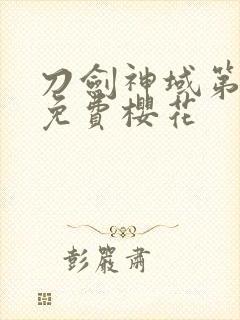 刀劍神域第
免費櫻花
彭嚴肅